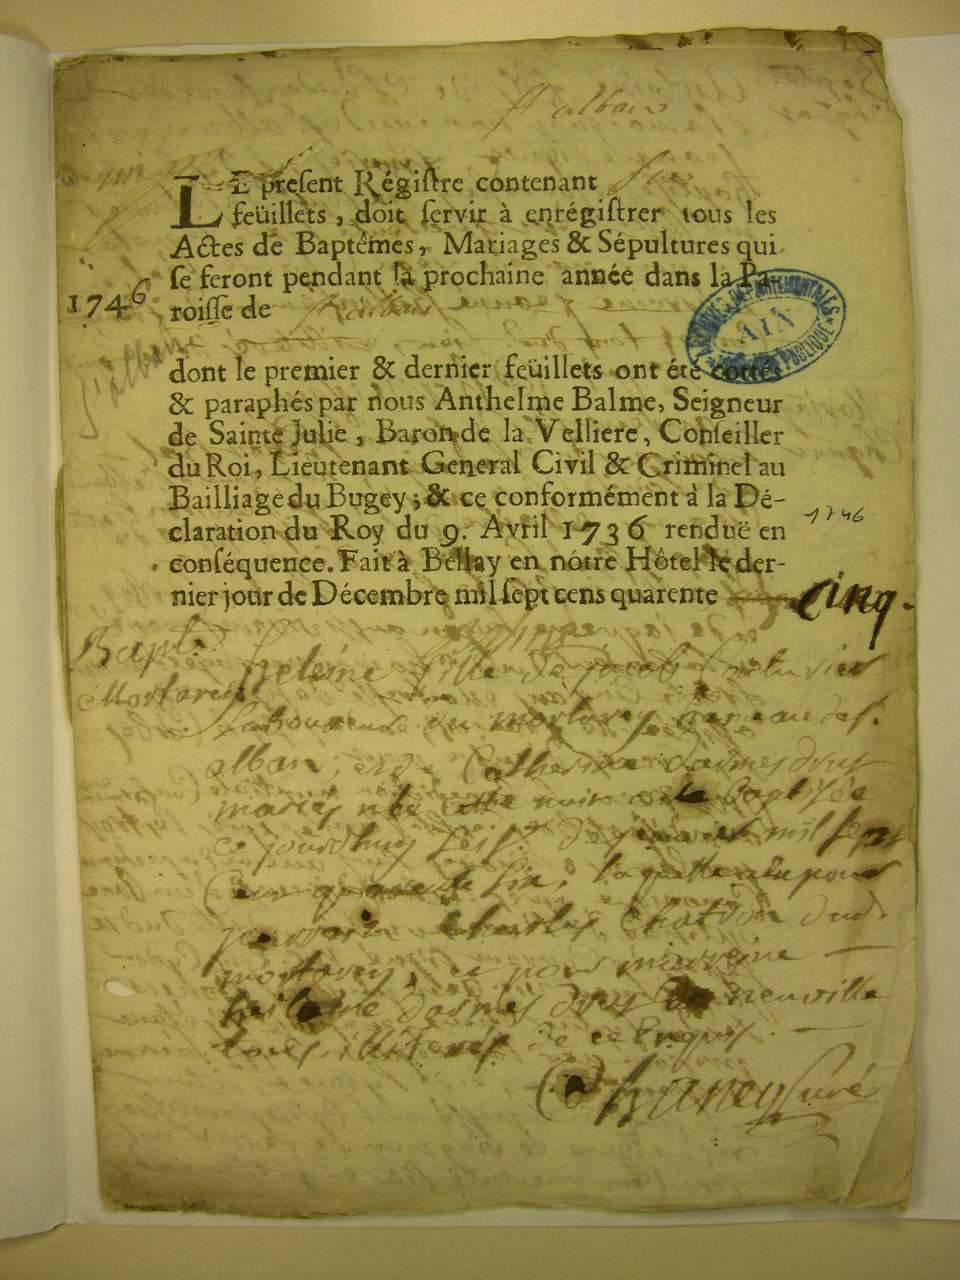 St alban
LE présent Régistre contenant six
feüillets, doit servir à enrégistrer tous les
Actes de Baptêmes, Mariages & Sépultures qui
se feront pendant la prochaine année dans la Pa-
1746
roisse de St alban
St alban
ARCHIVES DEPARTEMENTALES
AIN
PUBLIQUE
dont le premier & dernier feüillets ont été cottés
& paraphés par nous Anthelme Balme, Seigneur
de Sainte Julie, Baron de la Velliere, Conseiller
du Roi, Lieutenant General Civil & Criminel au
Bailliage du Bugey; & ce conformément à la Dé-
claration du Roy du 9. Avril 1736 renduë en
1746
conséquence. Fait à Bellay en nôtre Hôtel le der-
nier jour de Décembre mil sept cens quarente cinq.
Bapt.
Mortarey
heleine fille de jacob
laboureur du mortarey hameau de st
alban, et de Catherine
mariés née cette nuit a été baptisée
ce jourdhuy seise de janvier mil sept
cent quarente six, laquelle a eu pour
parrain Charles Chatdon dud.
mortarey, et pour marreine
de neuville
tous illiteres de ce enquis.
Curé